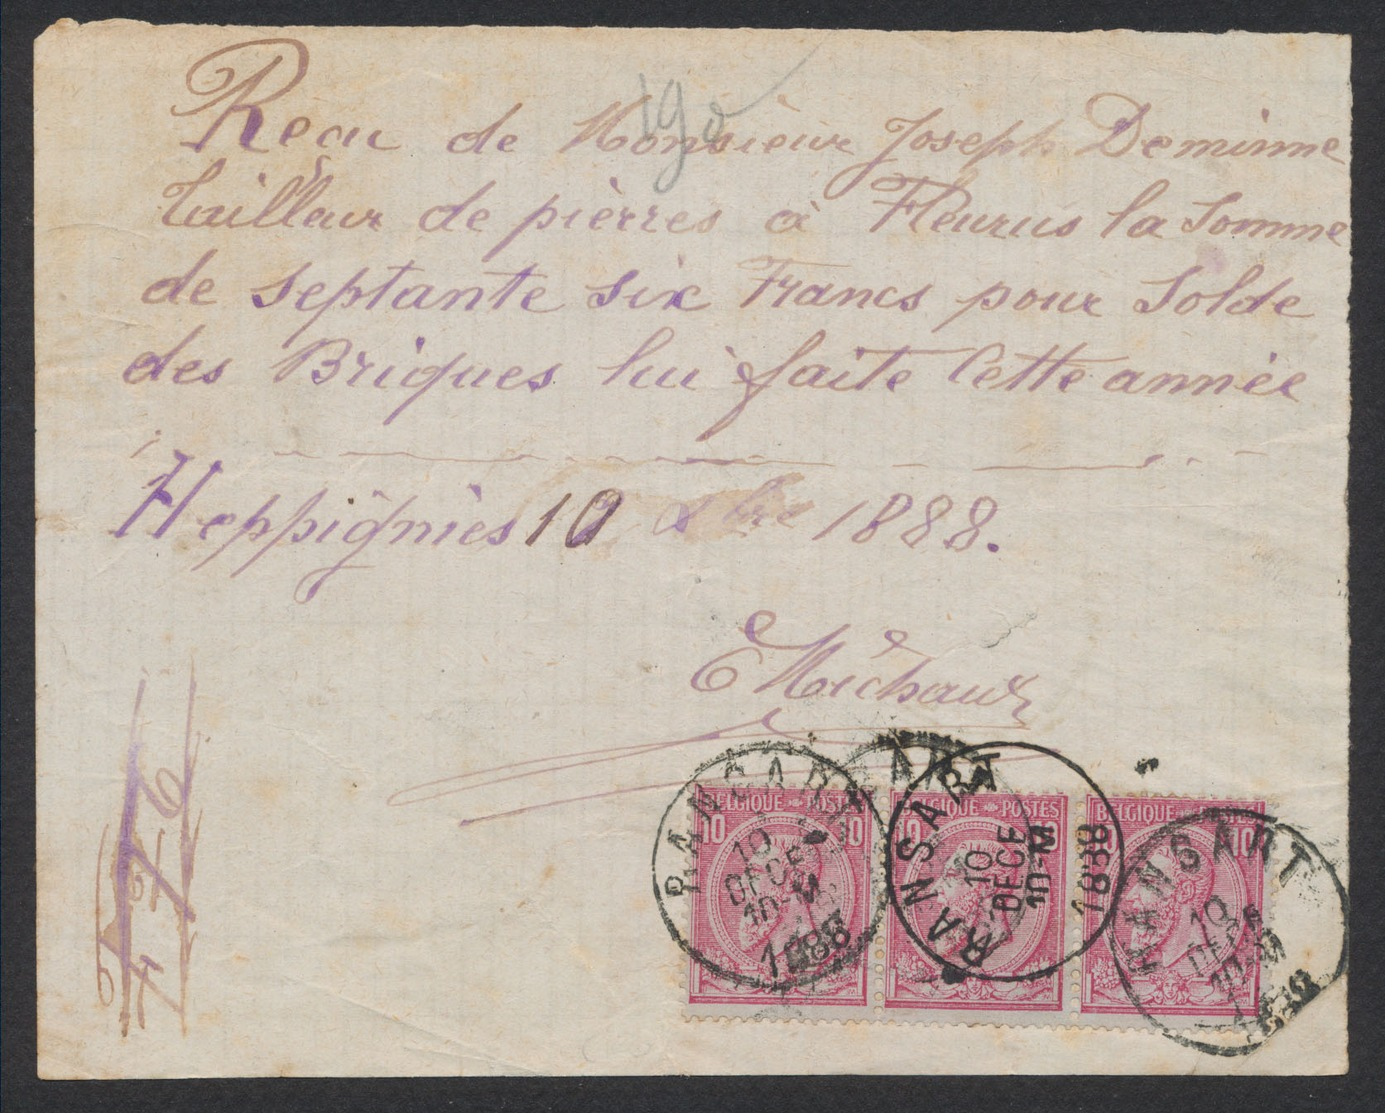 190
Recu de Monsieur Joseph Deminne
tailleur de pièrres à Fleurus la Somme
de Septante six Francs pour Solde
des Briques lui faite Cette année
Heppignies 10 Xbre 1888.
E Michaux
76
BELGIQUE POSTES BELGIQUE POSTES BELGIQUE POSTES
10 10 10 10
RANSART
10
DECE
10-M
1888
RANSART
10
DECE
10-M
1888
RANSART
10
DECE
10-M